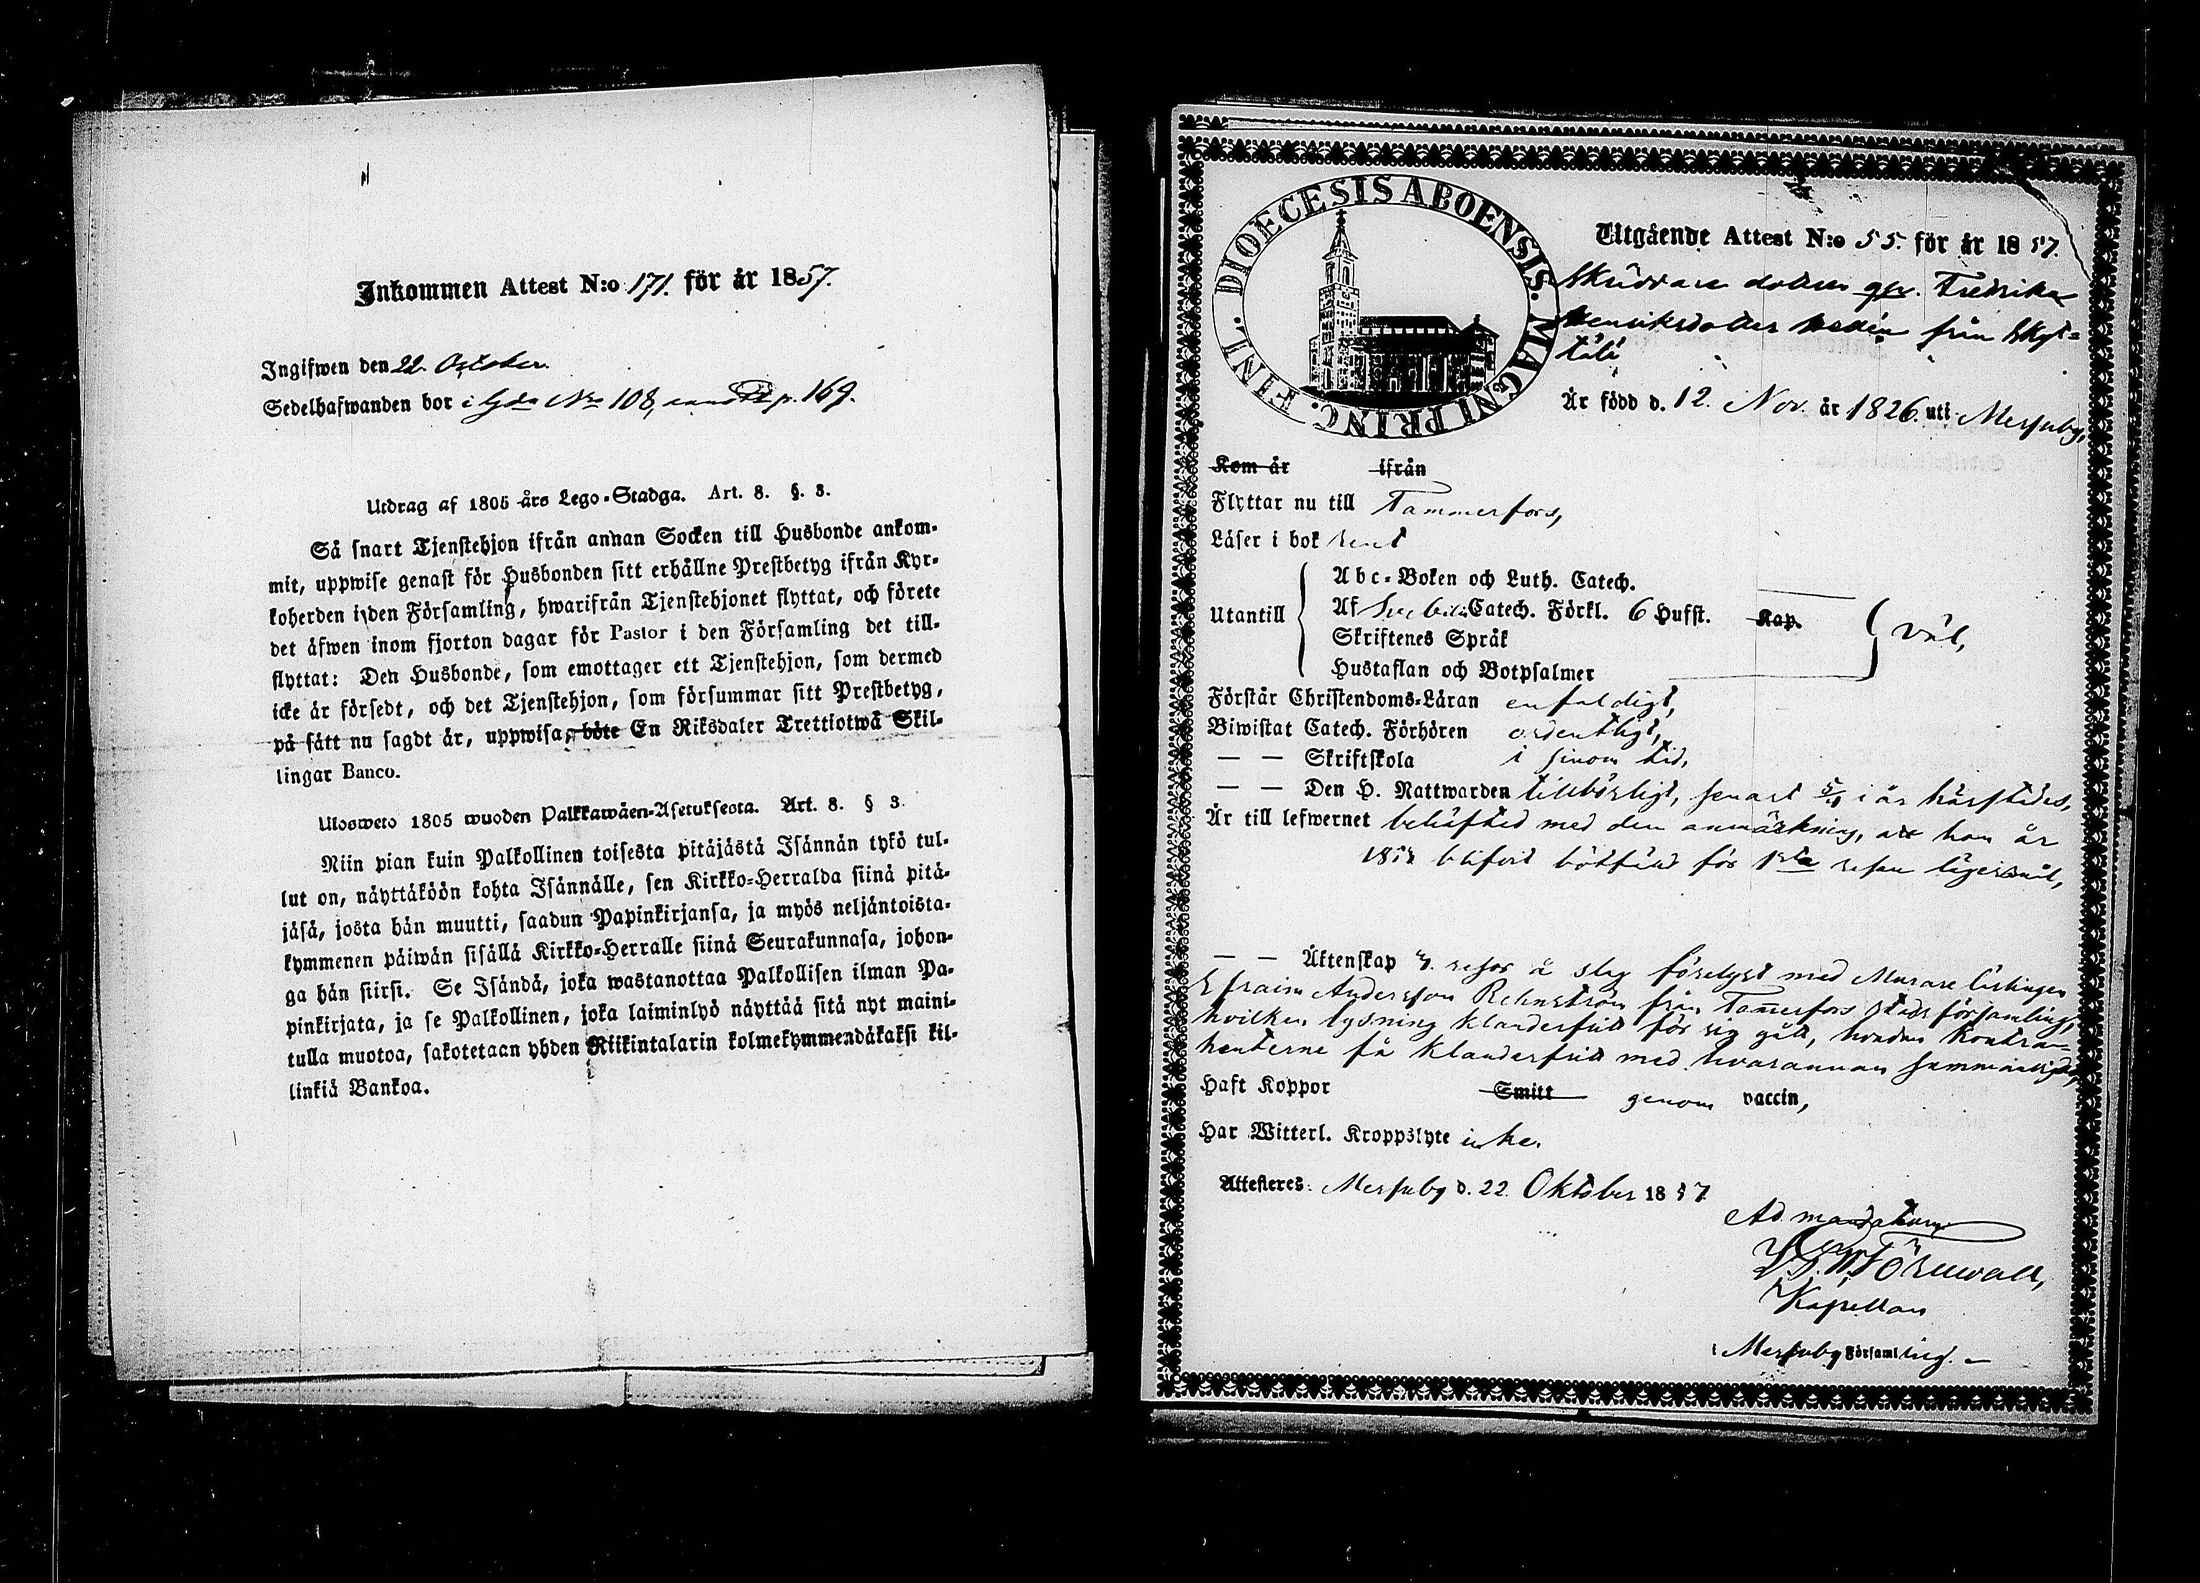 Inkommen Attest N:o 171. för år 1857.
Ingifwen den 22. October.
Sedelhafwanden bor i Gdn Nro 108, p. 169.
Utdrag af 1805 års Lego-Stadga. Art. 8. §. 3.
Så snart Tjenstehjon ifrån annan Socken till Husbonde ankom-
mit, uppwise genast för Husbonden sitt erhållne Prestbetyg ifrån Kyr-
koherden i den Församling, hwarifrån Tjenstehjonet flyttat, och förete
det äfwen inom fjorton dagar för Pastor i den Församling det till-
flyttat: Den Husbonde, som emottager ett Tjenstehjon, som dermed
icke är försedt, och det Tjenstehjon, som försummar sitt Prestbetyg,
på sätt nu sagdt är, uppwisa, böte En Riksdaler Trettiotwå Skil-
lingar Banco.
Ulosweto 1805 wuoden Palkkawäen-Asetuksesta. Art. 8. § 3.
Niin pian kuin Palkollinen toisesta pitäjästä Isännän tykö tul-
lut on, näyttäköön kohta Isännälle, sen Kirkko-Herralda siinä pitä-
jäsä, josta hän muutti, saadun Papinkirjansa, ja myös neljäntoista-
kymmenen päiwän sisällä Kirkko-Herralle siinä Seurakunnasa, johon-
ga hän siirsi. Se Isändä, joka wastanottaa Palkollisen ilman Pa-
pinkirjata, ja se Palkollinen, joka laiminlyö näyttää sitä nyt maini-
tulla muotoa, sakotetaan yhden Riikintalarin kolmekymmendäkaksi kil-
linkiä Bankoa.
DIOECESIS ABOENSIS. MAGNI PRINC. FINL.
Utgående Attest N:o 55. för år 1857.
Skräddare dottren Fredrika
Henriksdotter Hedén från Skyt-
tälä
Är född d. 12. Nov. år 1826. uti Messuby,
Kom år ifrån
Flyttar nu till Tammerfors,
Läser i bok rent
Abc-Boken och Luth. Catech.
Utantill Af Svebilii Catech. Förkl. 6 Hufst. Kap. väl,
Skriftenes Språk
Hustaflan och Botpsalmer
Förstår Christendoms-Läran enfaldigt,
Biwistat Catech. Förhören ordentligt,
— — Skriftskola i sinom tid.
— — Den H. Nattwarden tillbörligt, senast i år härstädes,
Är till lefwernet behäftad med den anmärkning, att hon är
blifvit bötfäld för 1sta resan lägersmål,
— — Äktenskap 3. resor å slag förelyst med Murare Lärlingen
Efraim Andersson Rehnström från Tammerfors stads församling,
hvilken lysning klanderfritt för sig gått, hvadan Kontra-
henterne få klanderfritt med hvarannan sammanvigas,
Haft Koppor Smitt genom vaccin,
Har Witterl. Kroppslyte icke.
Attesteras: Messuby d. 22. Oktober 1857
Ad mandatum
Törnwall,
Kapellan
i Messuby Församling.